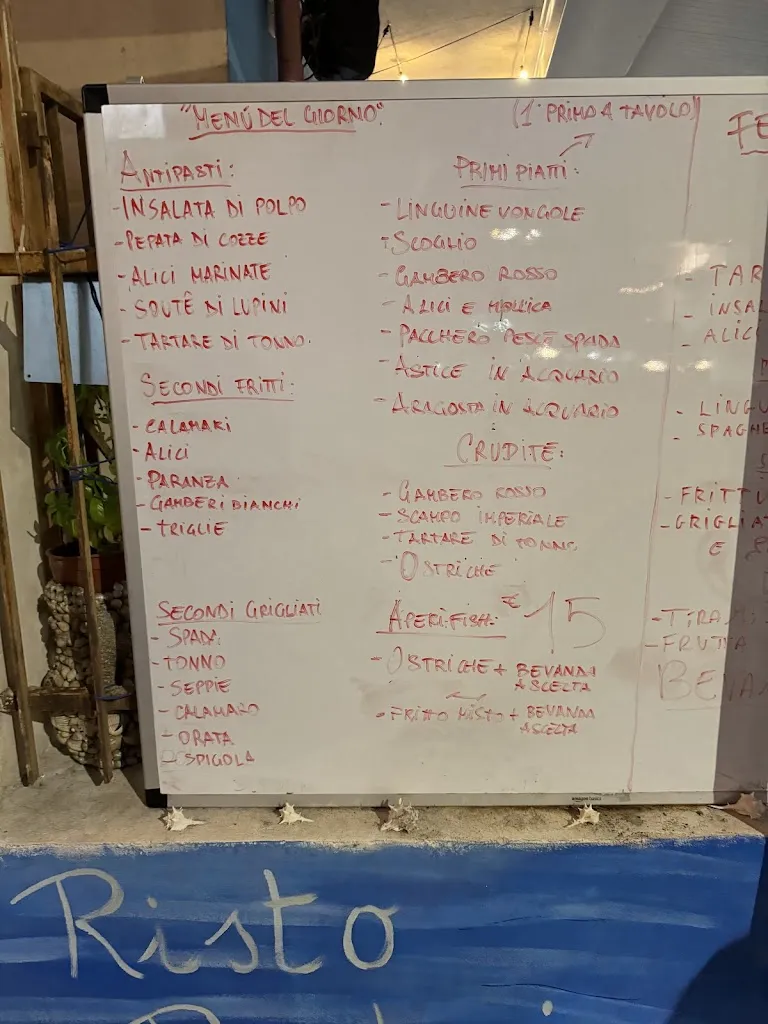 "MENÚ DEL GIORNO"
(1° PRIMO A TAVOLO)
ANTIPASTI:
- INSALATA DI POLPO
- PEPATA DI COZZE
- ALICI MARINATE
- SOUTÊ DI LUPINI
- TARTARE DI TONNO.
SECONDI FRITTI:
- CALAMARI
- ALICI
- PARANZA
- GAMBERI BIANCHI
- TRIGLIE
SECONDI GRIGLIATI
- SPADA
- TONNO
- SEPPIE
- CALAMARO
- ORATA
SPIGOLA
PRIMI PIATTI:
- LINGUINE VONGOLE
- SCOGLIO
- GAMBERO ROSSO
- ALICI E MOLLICA
- PACCHERO PESCE SPADA
- ASTICE IN ACQUARIO
- ARAGOSTA IN ACQUARIO
CRUDITÉ:
- GAMBERO ROSSO
- SCAMPO IMPERIALE
- TARTARE DI TONNO.
- OSTRICHE
APERI-FISH: € 15
- OSTRICHE + BEVANDA
A SCELTA
- FRITTO MISTO + BEVANDA
A SCELTA
FE
- TAR
- INSAL
- ALICI
- LINGU
- SPAGHE
- FRITTU
- GRIGLIAT
E
- TIRAMI
- FRUTTA
BEVAN
amazon basics
Risto